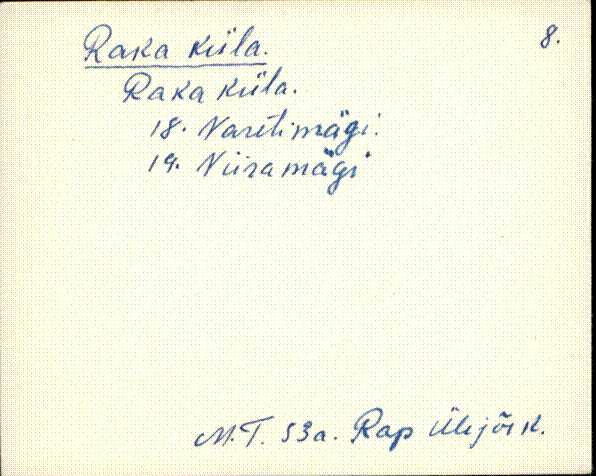 8.
Raka küla.
Raka küla.
18. Naretimägi.
19. Niiramägi
M.T. 53a. Rap Ülejõe k.